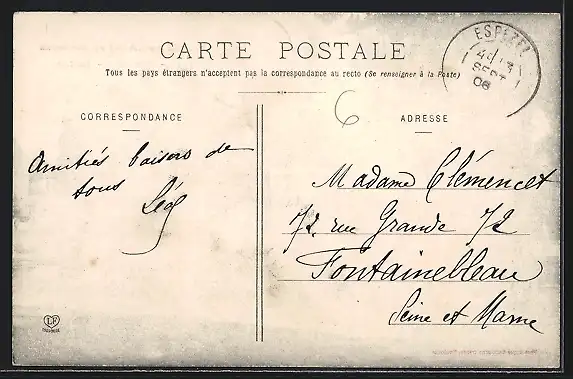 CARTE POSTALE
Tous les pays étrangers n'acceptent pas la correspondance au recto (Se renseigner à la Poste)
ESPEZEL
SEPT
06
6
CORRESPONDANCE
ADRESSE
Amitiés baisers de
tous
Madame Clémencet
72, rue Grande 72
Fontainebleau
Seine et Marne